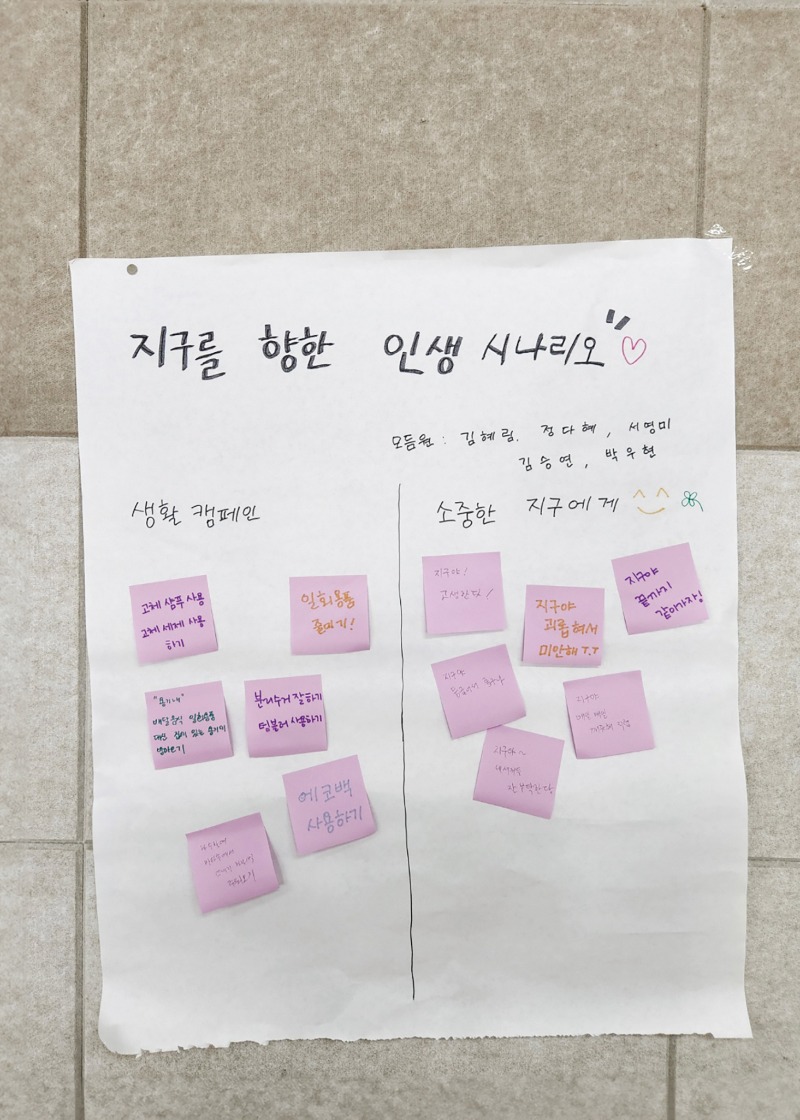 지구를 향한 인생 시나리오
모듬원 : 김혜림, 정다혜, 서영미
김승연, 박우현
생활 캠페인
고체 샴푸 사용
고체 세제 사용
하기
일회용품
줄이기!
"용기내"
배달음식 일회용품
대신 집에 있는 용기에
담아오기
분리수거 잘하기
텀블러 사용하기
에코백
사용하기
소중한 지구에게
지구야!
고생한다!
지구야
괴롭혀서
미안해 T.T
지구야
끝까지
같이가자!
지구야
지구야
매번
지구야~